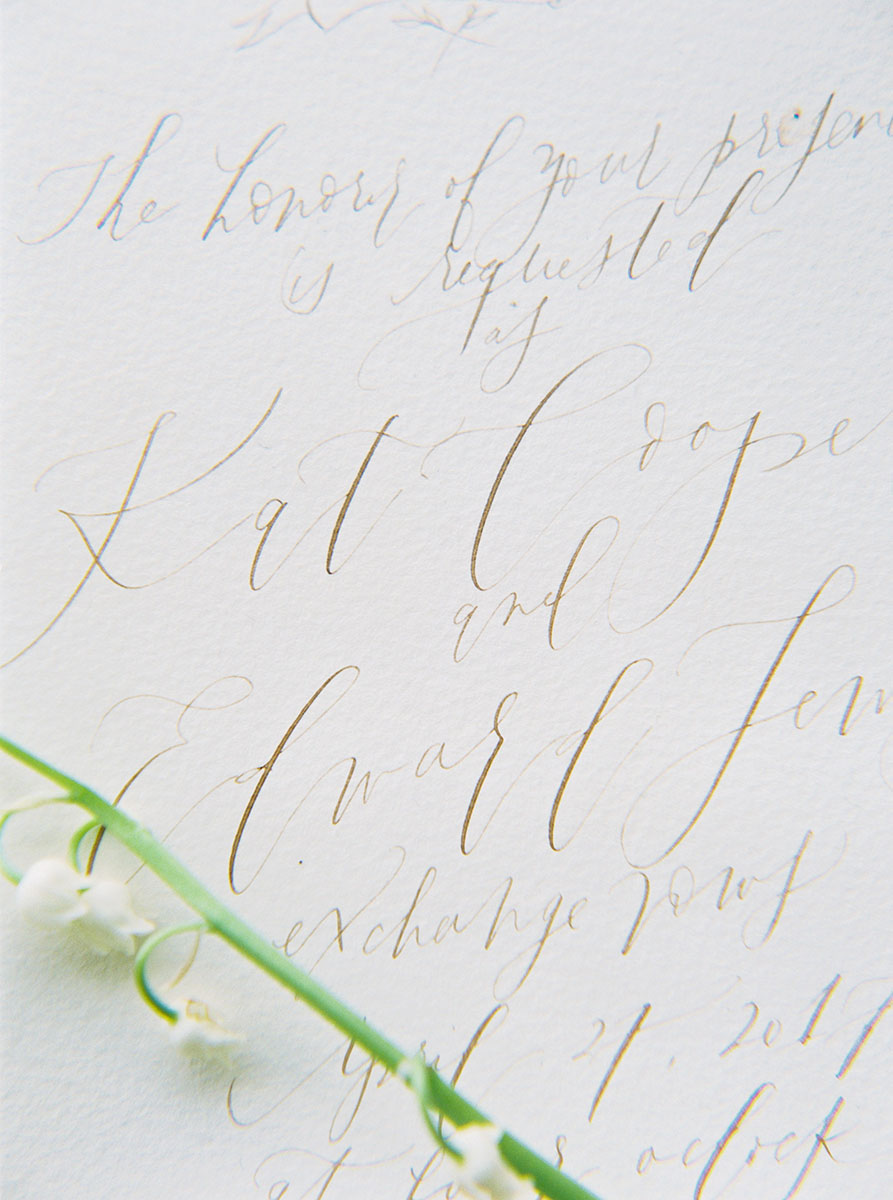 The honour of your presen
is requested
as
Kat Coope
and
Edward Jen
exchange vows
April 21, 2017
at four o'clock